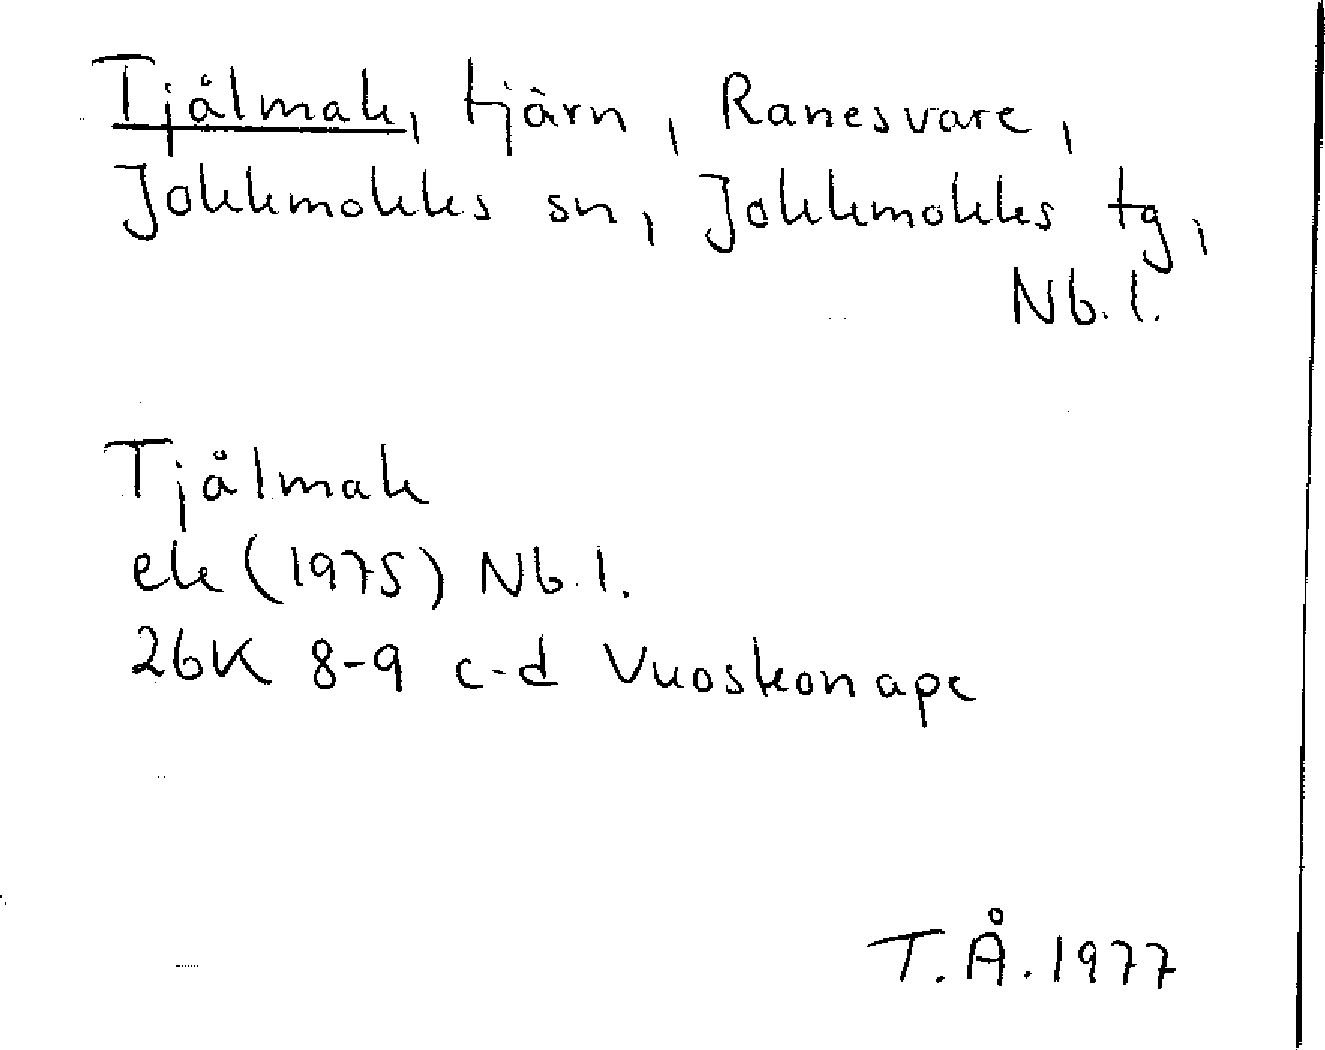 Tjålmak, tjärn, Ranesvare,
Jokkmokks sn, Jokkmokks tg,
Nb. l.
Tjålmak
ek (1975) Nb. l.
26K 8-9 c-d Vuoskonape
T. Å. 1977